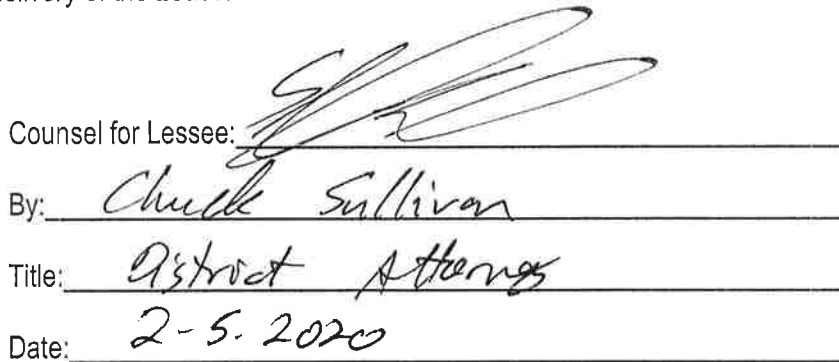 Counsel for Lessee:
By: Chuck Sullivan
Title: District Attorney
Date: 2-5-2020